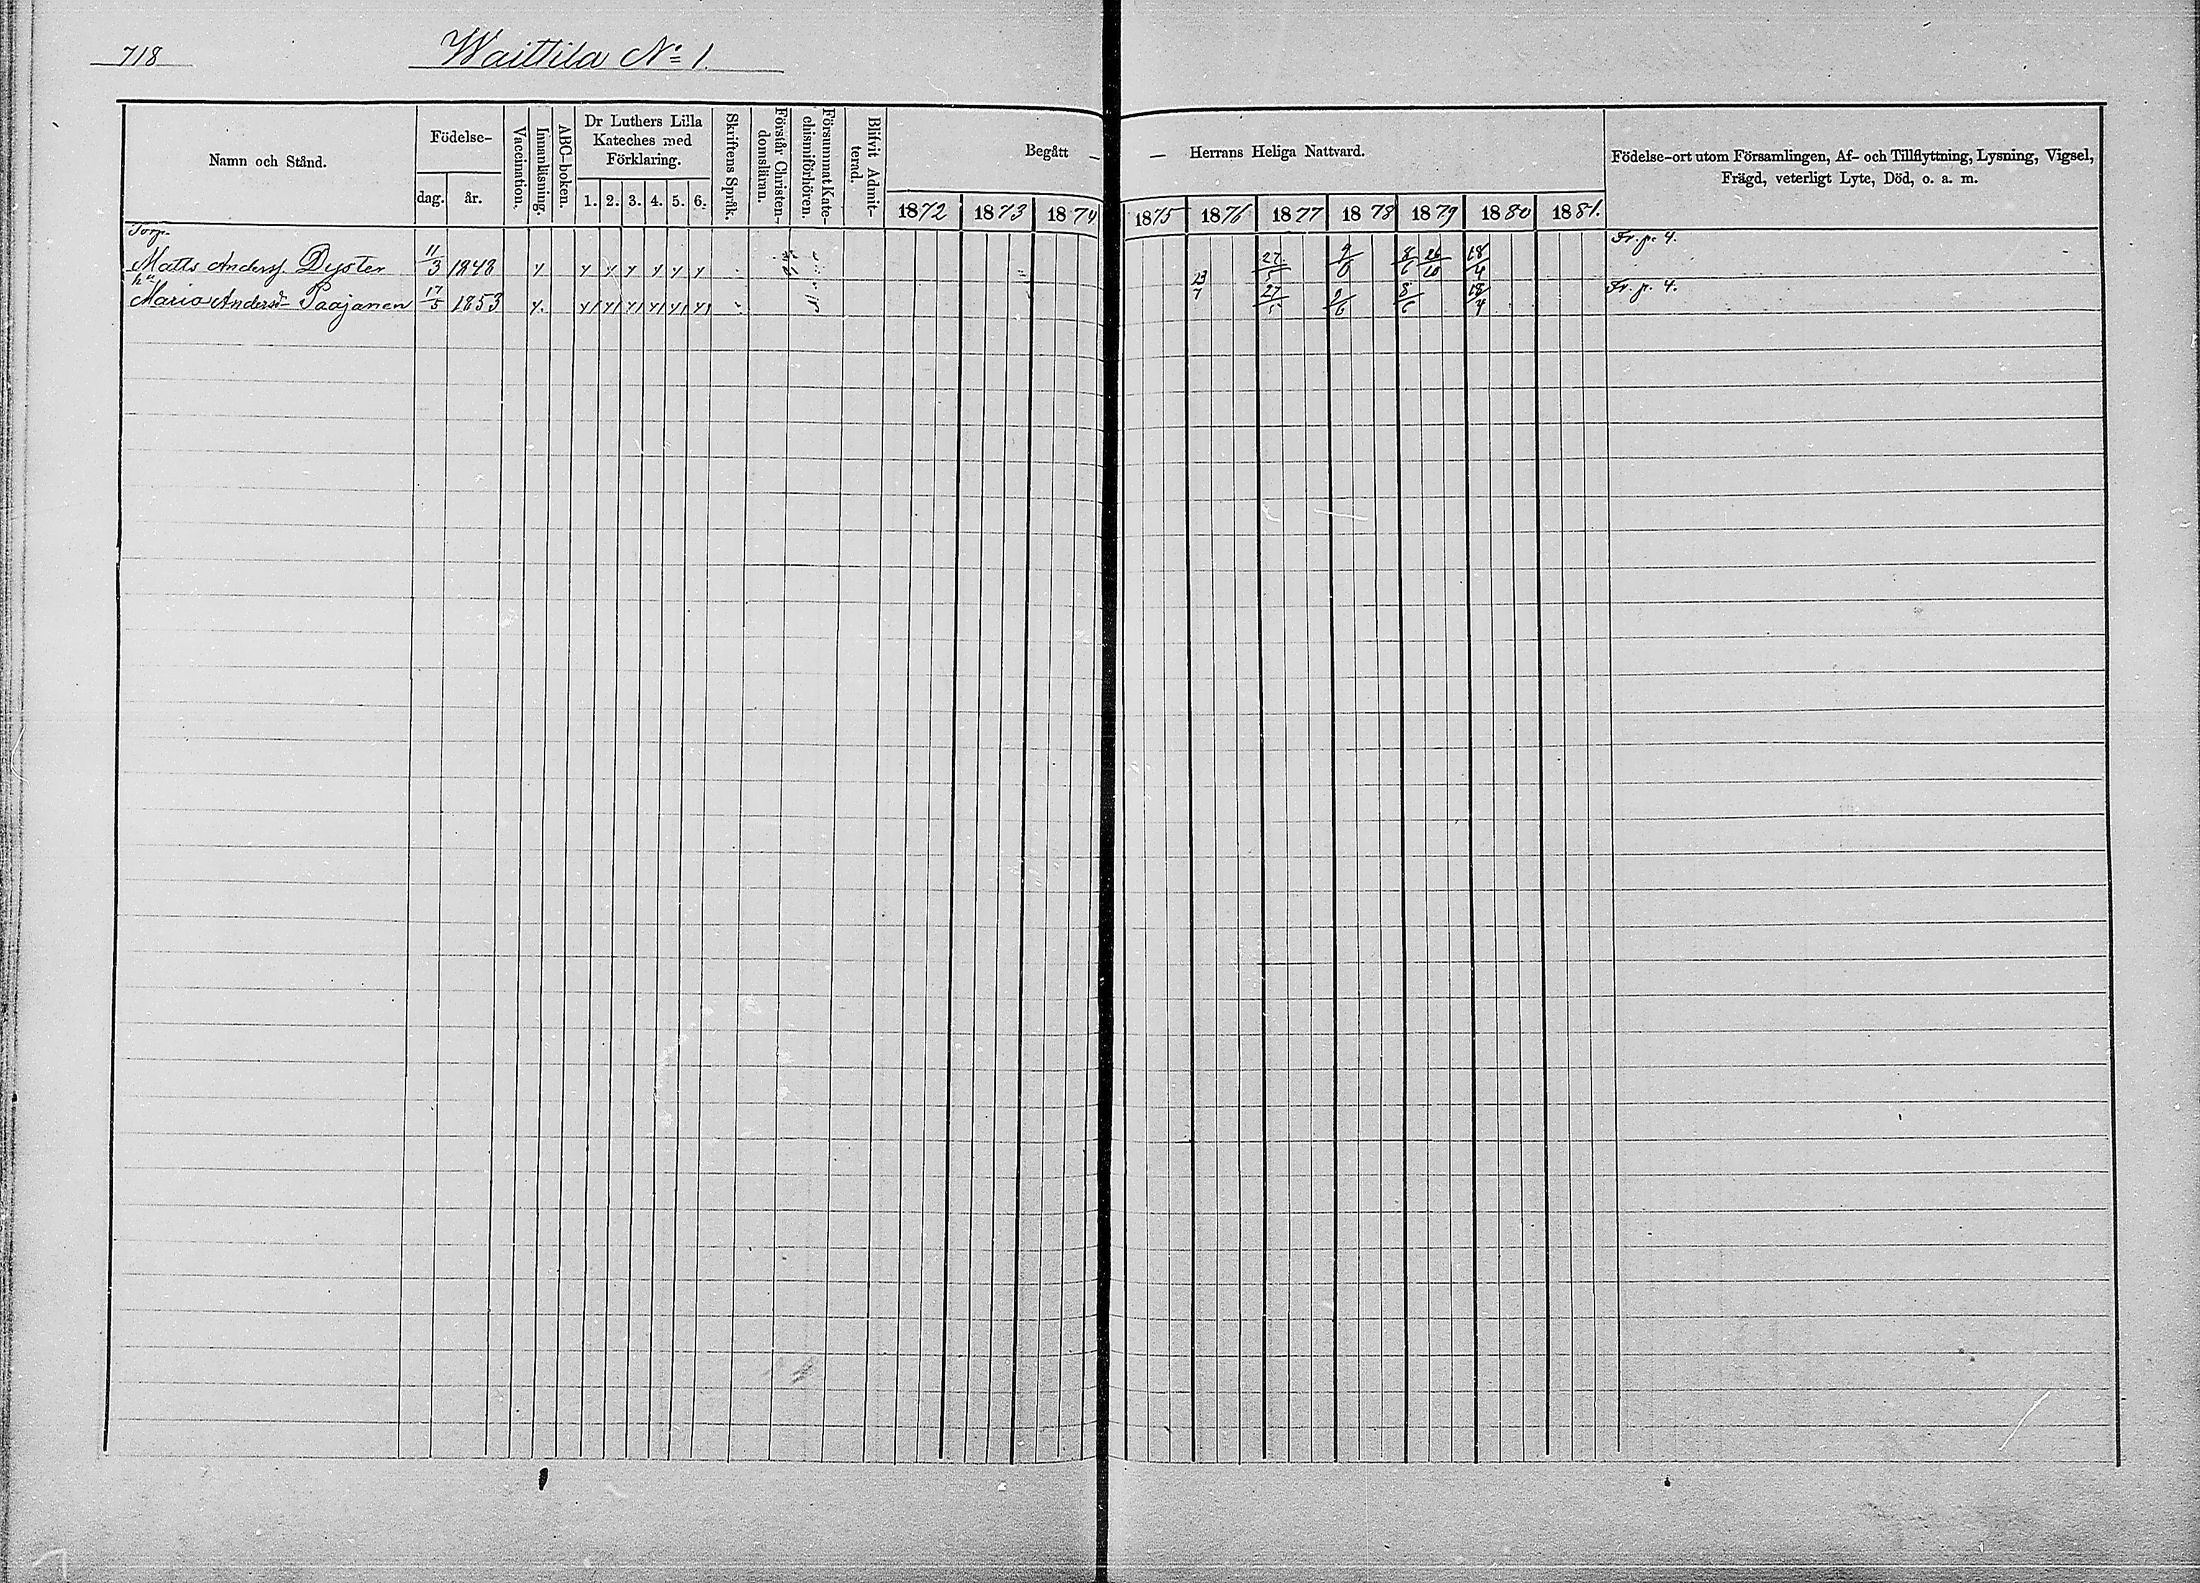 718
Waittila No 1.
Namn och Stånd.
Födelse-
dag. år.
Vaccination.
Innanläsning.
ABC-boken.
Dr Luthers Lilla
Kateches med
Förklaring.
1. 2. 3. 4. 5. 6.
Skriftens Språk.
Förstår Christen-
domsläran.
Försummat Kate-
chismiförhören.
Blifvit Admit-
terad.
Begått — — Herrans Heliga Nattvard.
1872 1873 1874 1875 1876 1877 1878 1879 1880 1881.
Födelse-ort utom Församlingen, Af- och Tillflyttning, Lysning, Vigsel,
Frägd, veterligt Lyte, Död, o. a. m.
Torp.
Matts Anderss. Dyster 11/3 1848 27/5 9/6 8/6 26/10 18/4 Fr. p. 4.
h u
Maria Andersd. Paajanen 17/5 1853 13/7 27/5 9/6 8/6 18/4 Fr. p. 4.